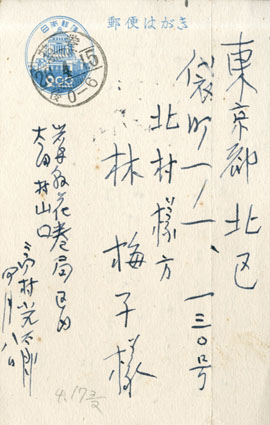 郵便はがき
東京都北区
袋町一ノ一、一三〇号
北村様方
林梅子様
岩手県花巻局区内
太田村山口
高村光太郎
四月八日
4.17